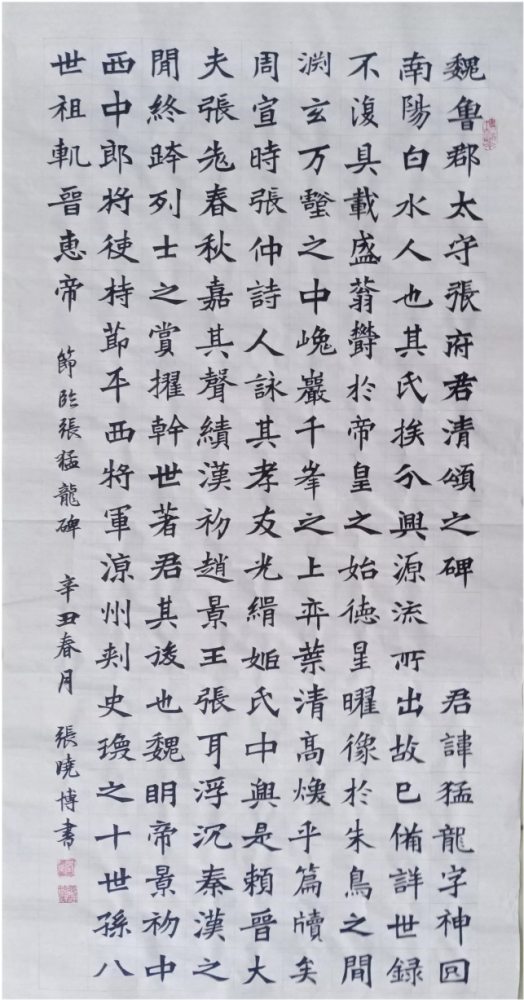 魏魯郡太守張府君清頌之碑 君諱猛龍字神冏
南陽白水人也其氏族分興源流所出故已備詳世録
不復具載盛蓊欝於帝皇之始德星曜像於朱鳥之間
渊玄万壑之中巉巖千峯之上弈葉清高煥乎篇牘矣
周宣時張仲詩人詠其孝友光緝姬氏中興是賴晉大
夫張老春秋嘉其聲績漢初趙景王張耳浮沉秦漢之
間終跨列士之賞擢幹世著君其後也魏明帝景初中
西中郎将使持節平西将軍涼州刺史瑍之十世孫八
世祖軌晉惠帝
節臨張猛龍碑 辛丑春月 張曉博書